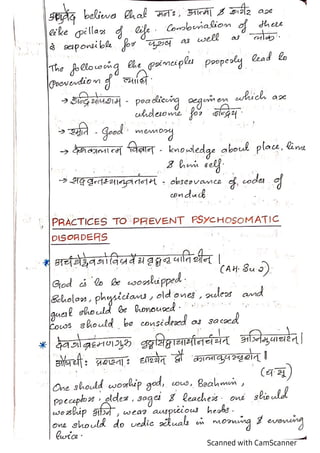 आयुर्वेद believe that मनः, आत्मा & शरीर are
like pillars of life. Combination of these
is responsible for पुरुष as well as लोक.
The following the principles properly lead to
prevention of व्याधि
→ इन्द्रियोपशम - practicing regimen which are
wholesome for इन्द्रिय.
→ स्मृति - Good memory
→ देशकालात्म विज्ञान - knowledge about place, time
& him self.
→ सद्वृत्तस्यानुवर्तनम् - observance of codes of
conduct
PRACTICES TO PREVENT PSYCHOSOMATIC
DISORDERS
* अर्चयेद्देवगोविप्रवैद्यवृद्धनृपातिथीन् |
(AH. Su 2)
God is to be worshipped.
Scholars, physicians, old ones, rulers and
guest should be honoured.
Cows should be considered as sacred
*
One should worship god, cow, Brahmin,
preceptors, older, sages & teachers. one should
worship अग्नि, wear auspicious herbs.
one should do vedic rituals in morning & evening
twice.
Scanned with CamScanner